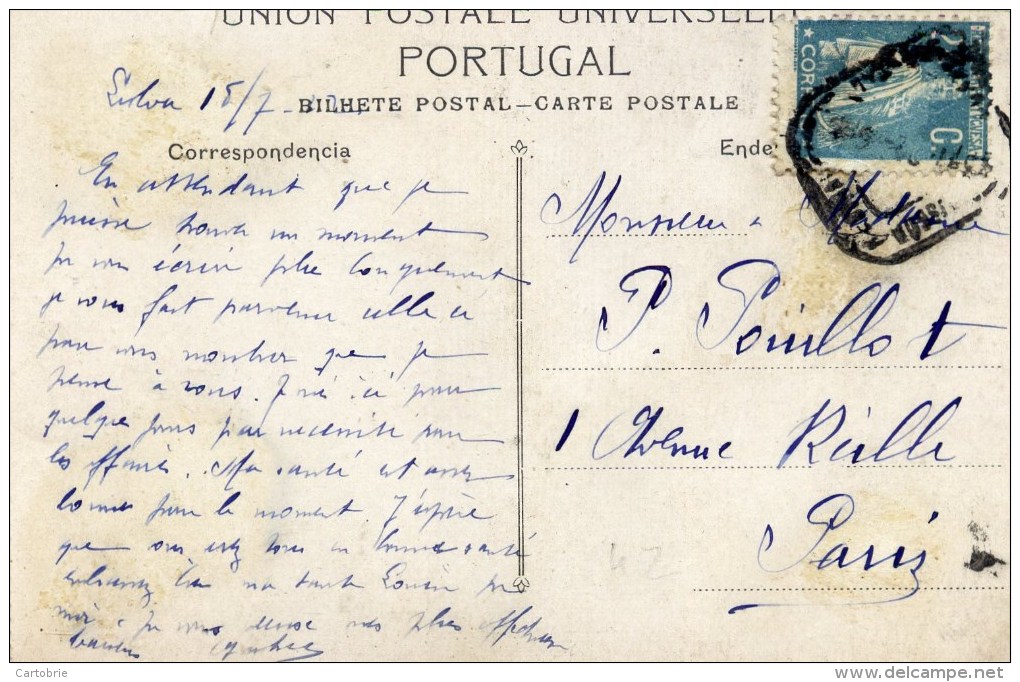 UNION POSTALE UNIVERSELLE
PORTUGAL
BILHETE POSTAL–CARTE POSTALE
Correspondencia
Ende
COR
C
15/7
En attendant que je
puisse trouver un moment
pr vous écrire plus longuement
je vous fait parvenir celle ci
pour vous montrer que je
pense à vous. Je suis ici pour
quelques jours par nécessité pour
les affaires. Ma santé est assez
bonne pour le moment J'espère
que vous êtes tous en bonne santé
embrassez bien ma tante Louise pr
moi. je vous envoie mes plus affectueux
baisers
Monsieur & Madame
P. Pouillot
1 Avenue Reille
Paris
42
Cartobrie
delcampe.net